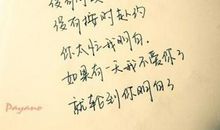 没有按时赴约
你太忙我明白
如果有一天我不爱你了
就轮到你明白了
Payano